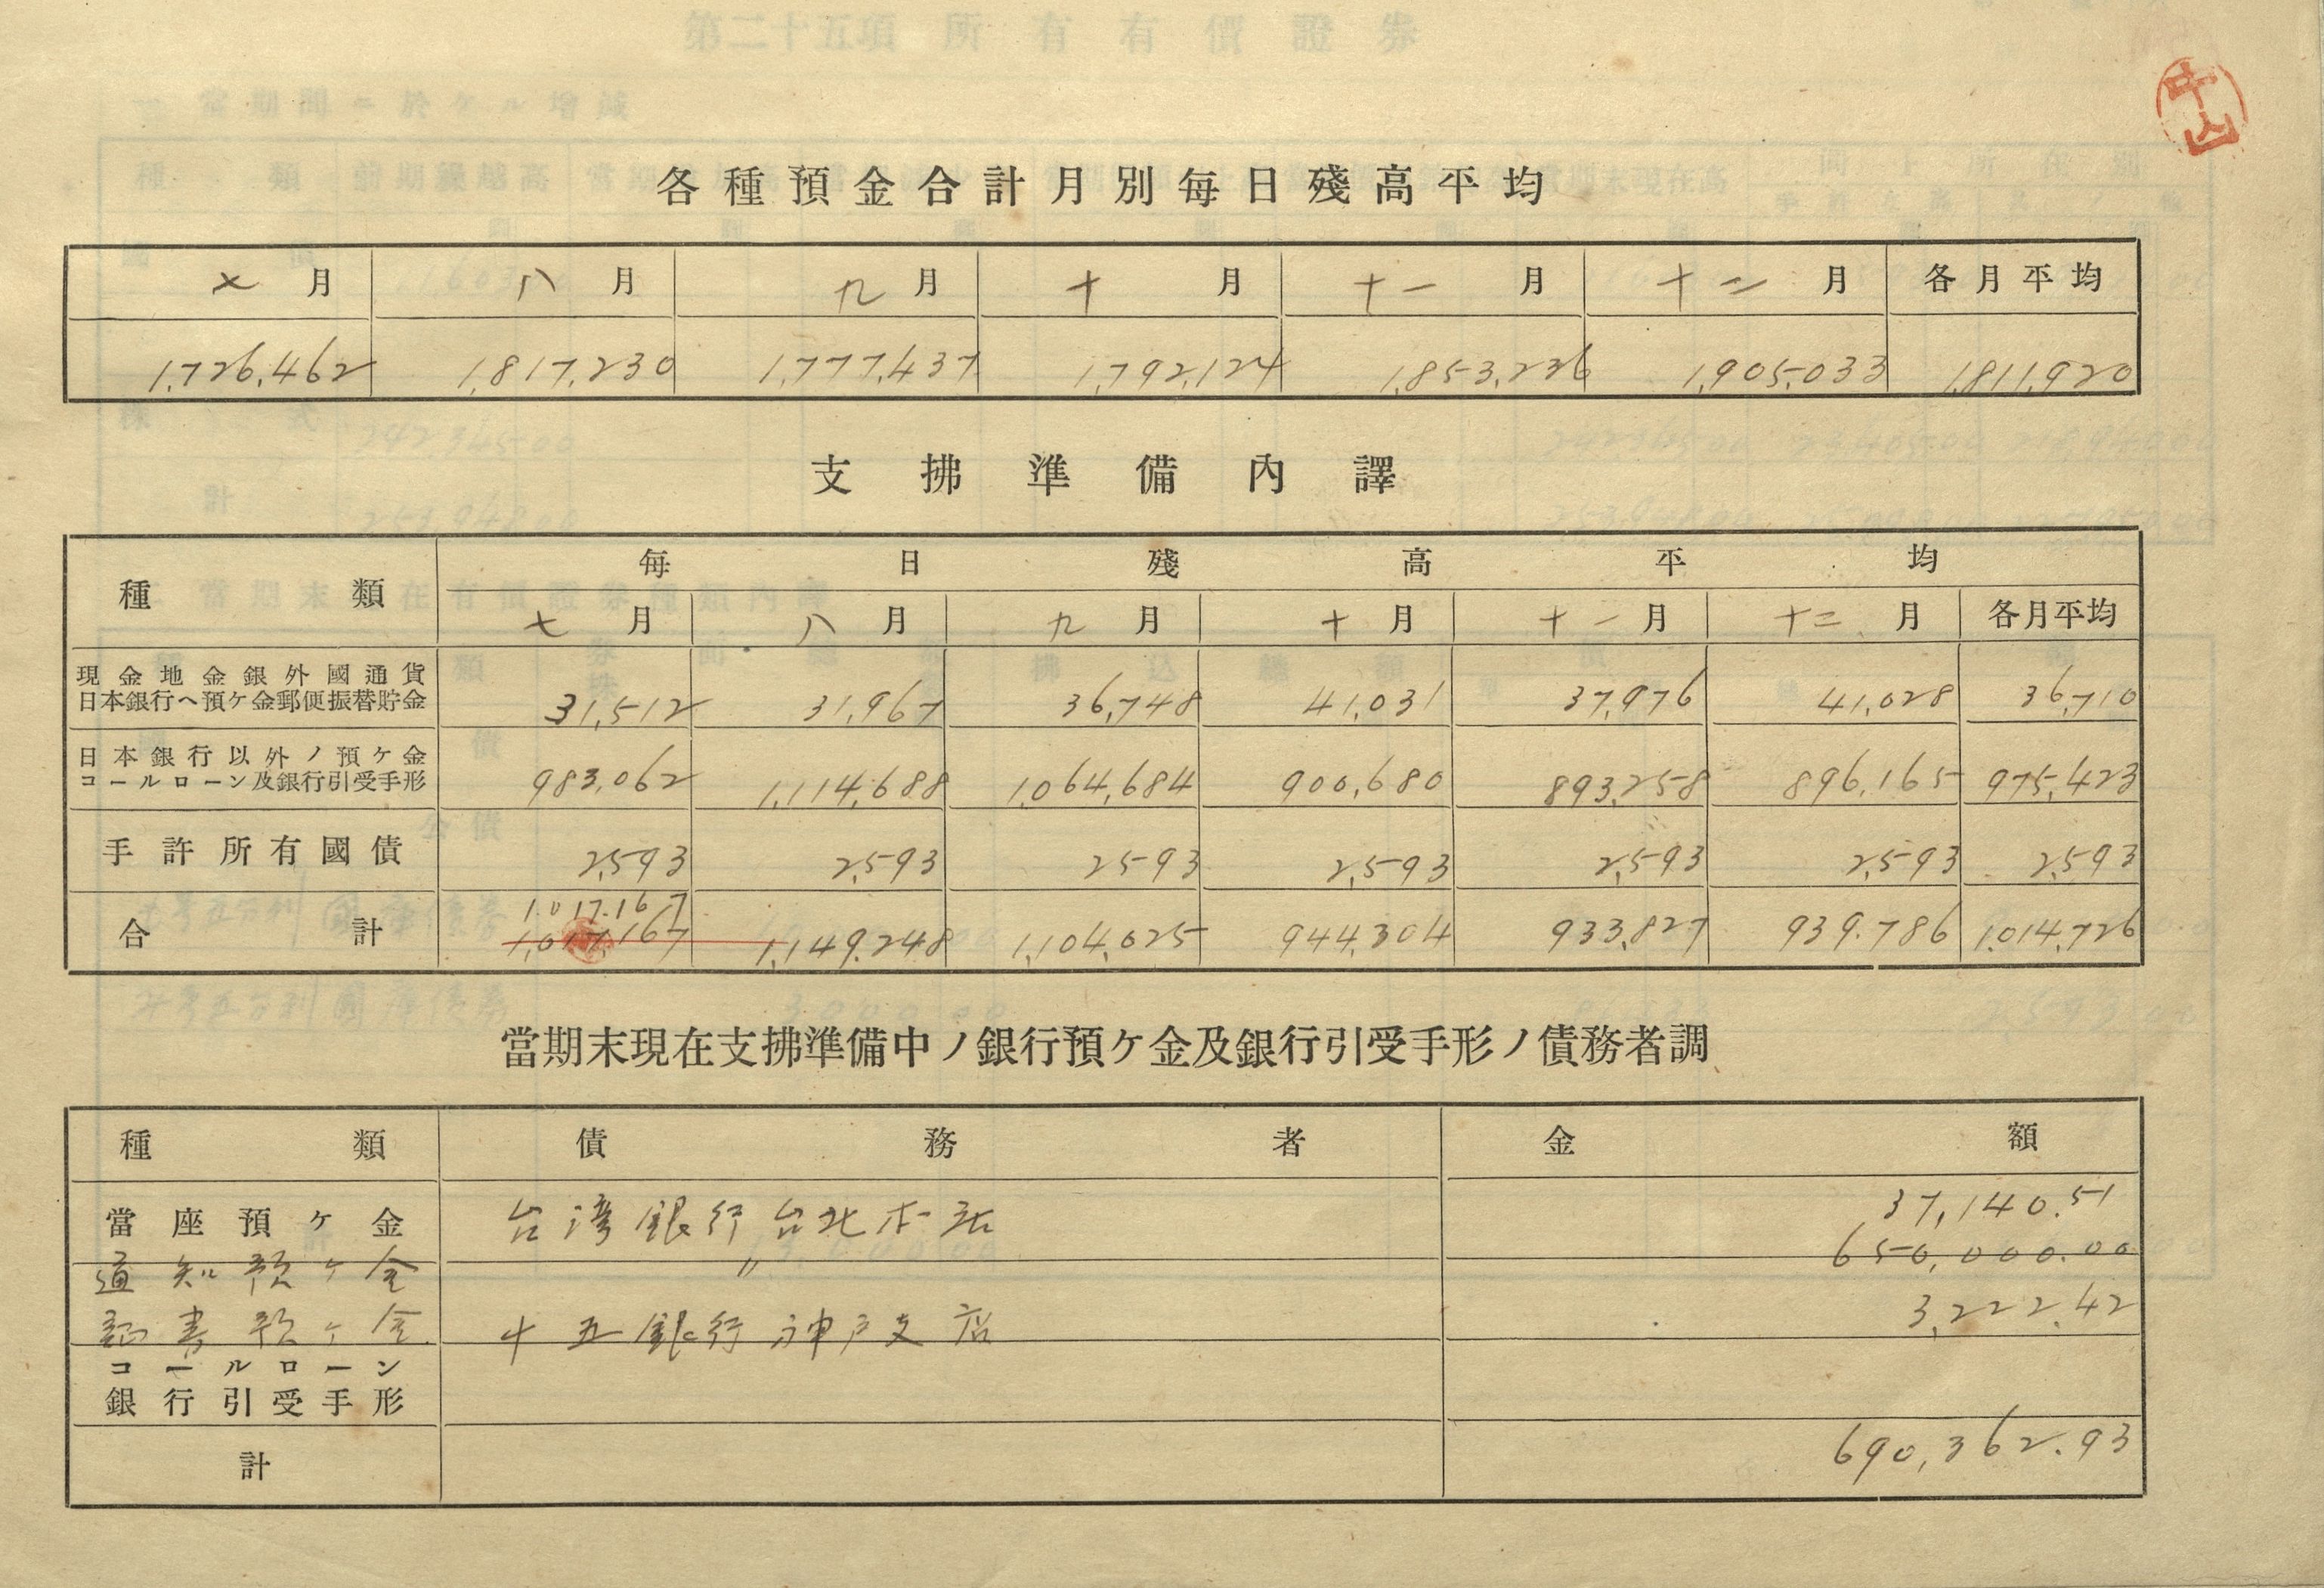 中山
各種預金合計月別每日殘高平均
七月 八月 九月 十月 十一月 十二月 各月平均
1,726,462 1,817,230 1,777,437 1,792,124 1,853,236 1,905,033 1,811,920
支拂準備內譯
種類 每日殘高平均
七月 八月 九月 十月 十一月 十二月 各月平均
現金地金銀外國通貨
日本銀行ヘ預ケ金郵便振替貯金 31,512 31,967 36,748 41,031 37,976 41,028 36,710
日本銀行以外ノ預ケ金
コールローン及銀行引受手形 983,062 1,114,688 1,064,684 900,680 893,258 896,165 975,423
手許所有國債 2,593 2,593 2593 2,593 2,593 2,593 2,593
1.017.167
合計 1,017,167 1,149.248 1,104,025 944,304 933,827 939.786 1,014,726
當期末現在支拂準備中ノ銀行預ケ金及銀行引受手形ノ債務者調
種類 債務者 金額
當座預ケ金 台湾銀行台北本店 37,140.51
通知預ケ金 〃 650,000.00
証書預ケ金 十五銀行神戸支店 3,222.42
コールローン
銀行引受手形
計 690,362.93